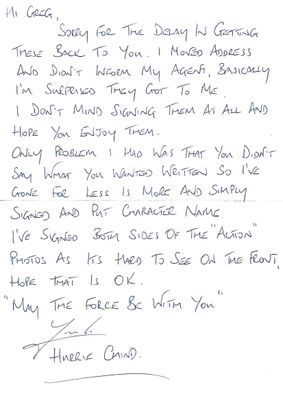 Hi Greg,
Sorry For The Delay In Getting
These Back To You. I Moved Address
And Didn't Inform My Agent, Basically
I'm Surprised They Got To Me.
I Don't Mind Signing Them At All And
Hope You Enjoy Them.
Only Problem I Had Was That You Didn't
Say What You Wanted Written So I've
Gone For Less Is More And Simply
Signed And Put Character Name
I've Signed Both Sides Of The "Action"
Photos As It's Hard To See On The Front,
Hope That Is OK.
"May The Force Be With You"